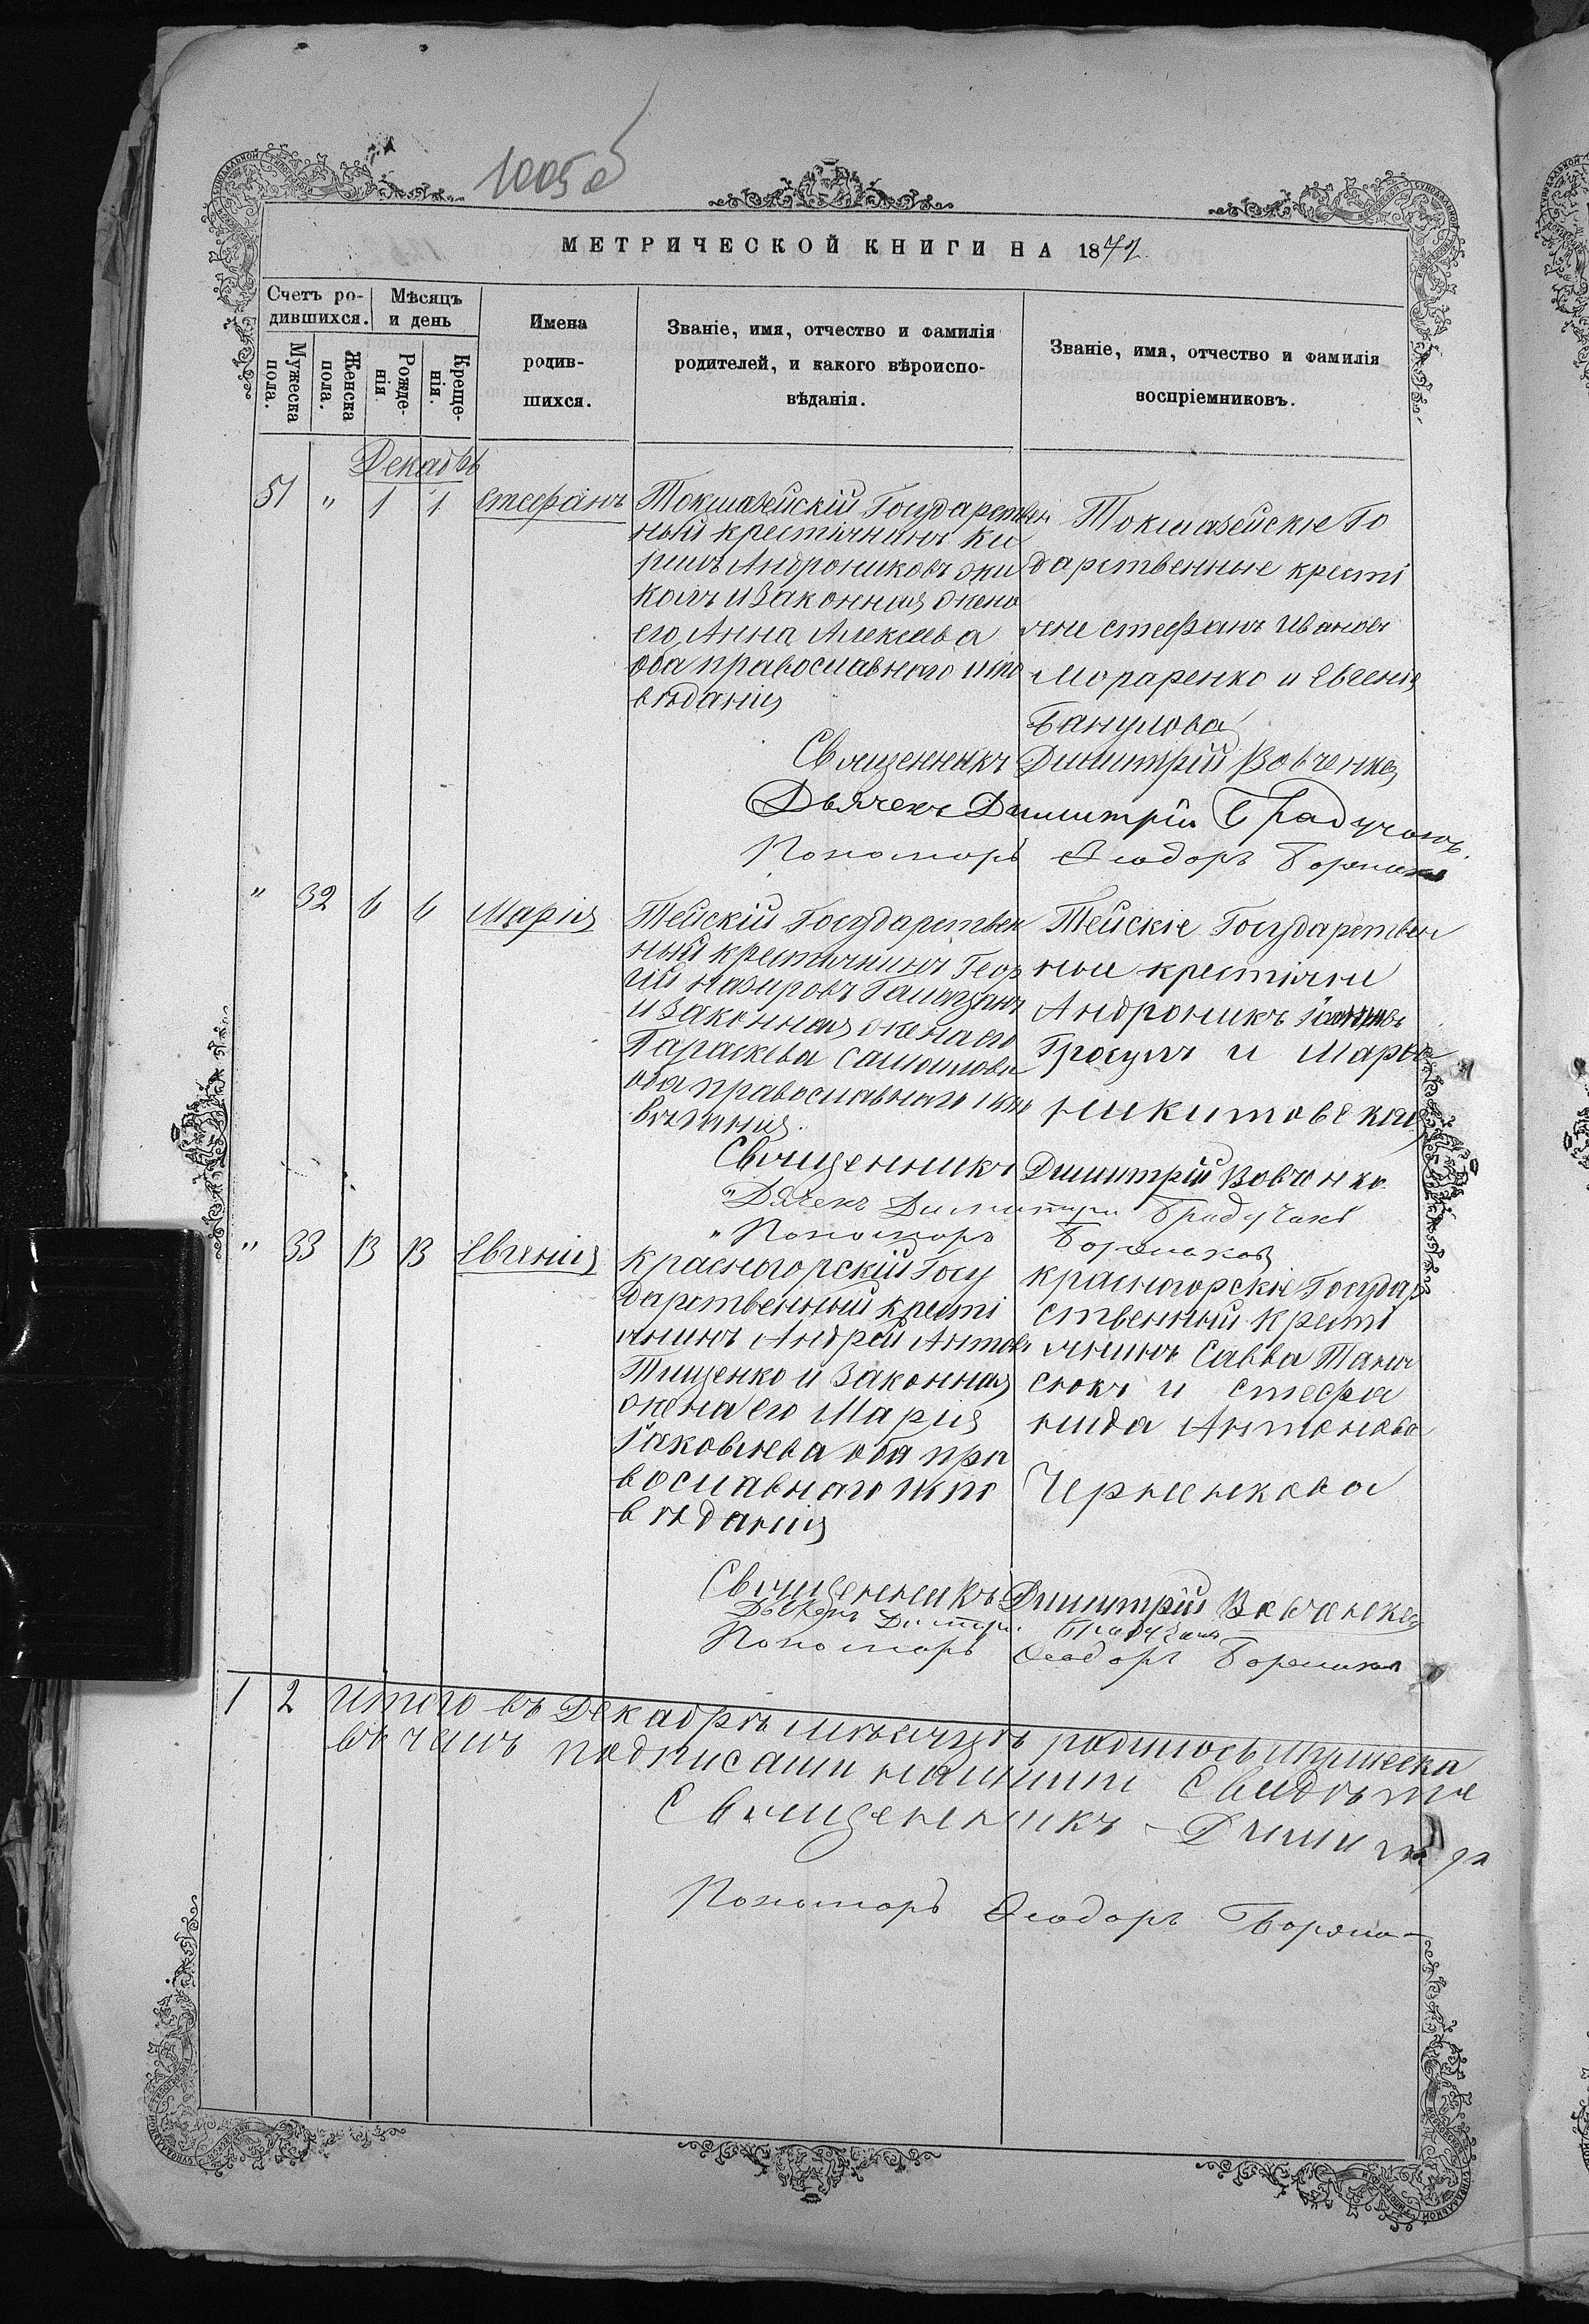 1005 об
МЕТРИЧЕСКОЙ КНИГИ НА 187
Счетъ ро-
дившихся.
Мѣсяцъ
и день
Мужеска
пола.
Женска
пола.
Рожде-
нія
Креще-
нія.
Имена
родив-
шихся.
Званіе, имя, отчество и фамилія
родителей, и какого вѣроиспо-
вѣданія.
Званіе, имя, отчество и фамилія
воспріемниковъ.
Декабрь
51 " 1 1 Стефанъ
Токмазейскій Государствен
ный крестянинъ Ки
рилъ Андрониковъ
и законная жена
его Анна Алексѣева
оба православнаго испо
вѣданія
Токмазейскіе Го
дарственные крестя
не Стефанъ Ивановъ
Мораренко и Евгенія
Банулова
Священникъ Димитрій Вовченко
Дьячекъ Димитрій Градучанъ.
Пономарь Ѳеодоръ
" 32 6 6 Марія
Тейскій Государствен
ный крестянинъ Геор
гій Назаровъ
и законная жена его
Параскева Самоилова
оба православнаго испо
вѣданія.
Тейскіе Государствен
ные крестяне
Андроникъ
Гросулъ и Марія
Никитовская
Священникъ Димитрій Вовченко
Дячекъ Димитрій Градучанъ
" Пономарь
" 33 13 13 Евгенія
Красногорскій Госу
дарственный крестя
янинъ Андрей Антоновъ
Тищенко и законная
жена его Марія
Яковлева оба пра
вославнаго испо
вѣданія
Красногорскіе Государ
ственный крестя
янинъ Савва Тана
сюкъ и Стефа
нида Антонова
Черненкова
Священникъ Димитрій Вовченко
Дьячекъ Димитрій Градучанъ
Пономарь Ѳеодоръ
1 2 Итого въ Декабрѣ мѣсяцѣ родилось мужеска
въ чемъ подписами нашими свидѣте
Священникъ Димитрі
Пономарь Ѳеодоръ